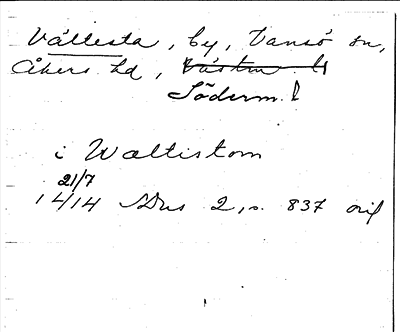 Vältesta, by, Vansö sn,
Åkers hd, Västm. l
Söderm. l
i Waltistom
21/7
1414 SDns 2, s. 837 orig